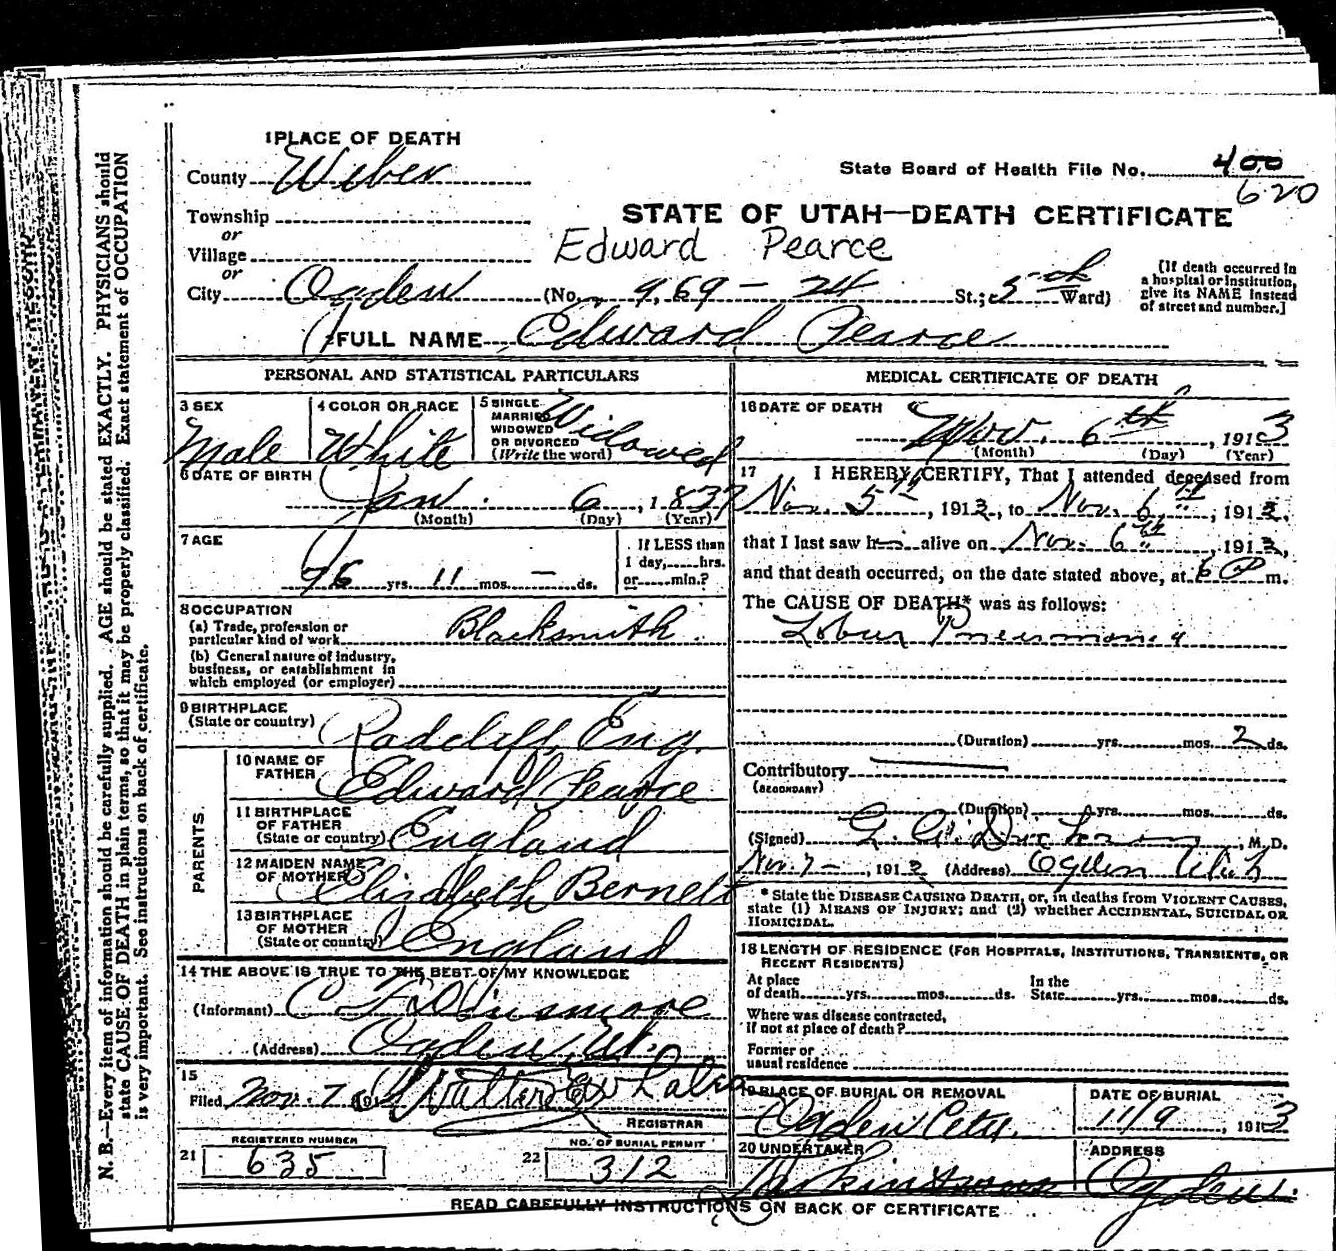 1 PLACE OF DEATH
County Weber
State Board of Health File No. 400
620
Township
or
STATE OF UTAH—DEATH CERTIFICATE
Village
Edward Pearce
or
City Ogden (No. 969 - 24 St.; 5th Ward)
[If death occurred in
a hospital or institution,
give its NAME instead
of street and number.]
FULL NAME Edward Pearce
PERSONAL AND STATISTICAL PARTICULARS
3 SEX
Male
4 COLOR OR RACE
White
5 SINGLE
MARRIED
WIDOWED
OR DIVORCED
(Write the word)
Widowed
6 DATE OF BIRTH
Jan. 6, 1837
(Month) (Day) (Year)
7 AGE
76 yrs. 11 mos. — ds.
If LESS than
1 day,.....hrs.
or.....min.?
8 OCCUPATION
(a) Trade, profession or
particular kind of work Blacksmith
(b) General nature of industry,
business, or establishment in
which employed (or employer)
9 BIRTHPLACE
(State or country) Radcliff, Eng.
PARENTS
10 NAME OF
FATHER Edward Pearce
11 BIRTHPLACE
OF FATHER
(State or country) England
12 MAIDEN NAME
OF MOTHER Elizabeth Bernett
13 BIRTHPLACE
OF MOTHER
(State or country) England
14 THE ABOVE IS TRUE TO THE BEST OF MY KNOWLEDGE
(Informant) C. F. Dinsmore
(Address) Ogden, Ut.
15
Filed Nov. 7 191 Walter
REGISTRAR
REGISTERED NUMBER
21 635
NO. OF BURIAL PERMIT
22 312
MEDICAL CERTIFICATE OF DEATH
16 DATE OF DEATH
Nov. 6th, 1913
(Month) (Day) (Year)
17 I HEREBY CERTIFY, That I attended deceased from
Nov. 5th, 1913, to Nov. 6th, 1913,
that I last saw h alive on Nov. 6th, 1913,
and that death occurred, on the date stated above, at 6 P m.
The CAUSE OF DEATH* was as follows:
Lobar Pneumonia
(Duration) yrs. mos. 2 ds.
Contributory
(SECONDARY)
(Duration) yrs. mos. ds.
(Signed) , M. D.
Nov. 7 - , 1913 (Address) Ogden Utah
* State the DISEASE CAUSING DEATH, or, in deaths from VIOLENT CAUSES,
state (1) MEANS OF INJURY; and (2) whether ACCIDENTAL, SUICIDAL OR
HOMICIDAL.
18 LENGTH OF RESIDENCE (FOR HOSPITALS, INSTITUTIONS, TRANSIENTS, OR
RECENT RESIDENTS)
At place
of death yrs. mos. ds.
In the
State yrs. mos. ds.
Where was disease contracted,
if not at place of death?
Former or
usual residence
19 PLACE OF BURIAL OR REMOVAL
Ogden City.
DATE OF BURIAL
11/9, 1913
20 UNDERTAKER
ADDRESS
Ogden.
READ CAREFULLY INSTRUCTIONS ON BACK OF CERTIFICATE
N. B.—Every item of information should be carefully supplied. AGE should be stated EXACTLY. PHYSICIANS should
state CAUSE OF DEATH in plain terms, so that it may be properly classified. Exact statement of OCCUPATION
is very important. See instructions on back of certificate.